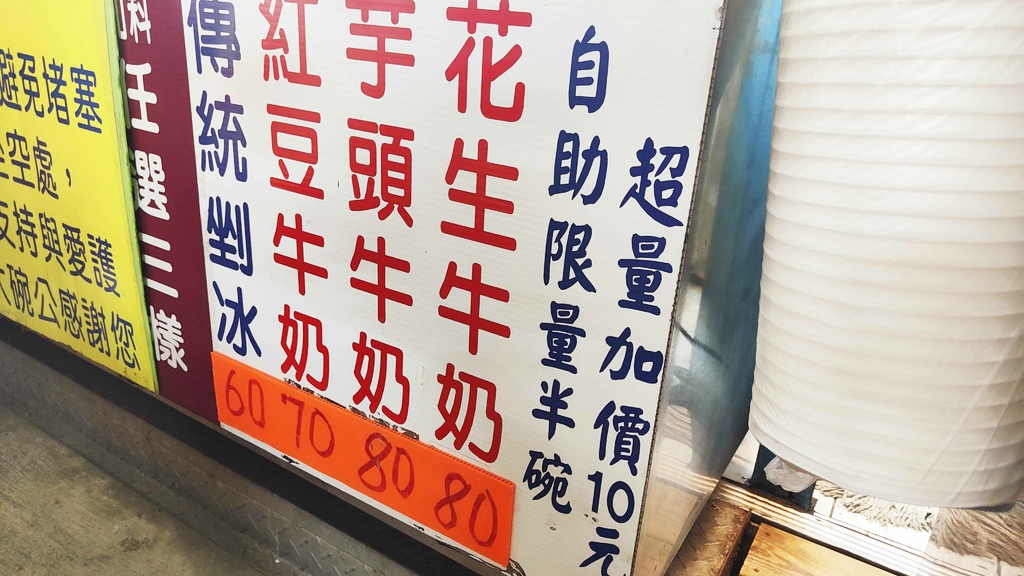 超量加價10元
自助限量半碗
花生牛奶
芋頭牛奶
紅豆牛奶
傳統剉冰
80
80
70
60
料任選三樣
避免堵塞
空處，
支持與愛護
碗公感謝您